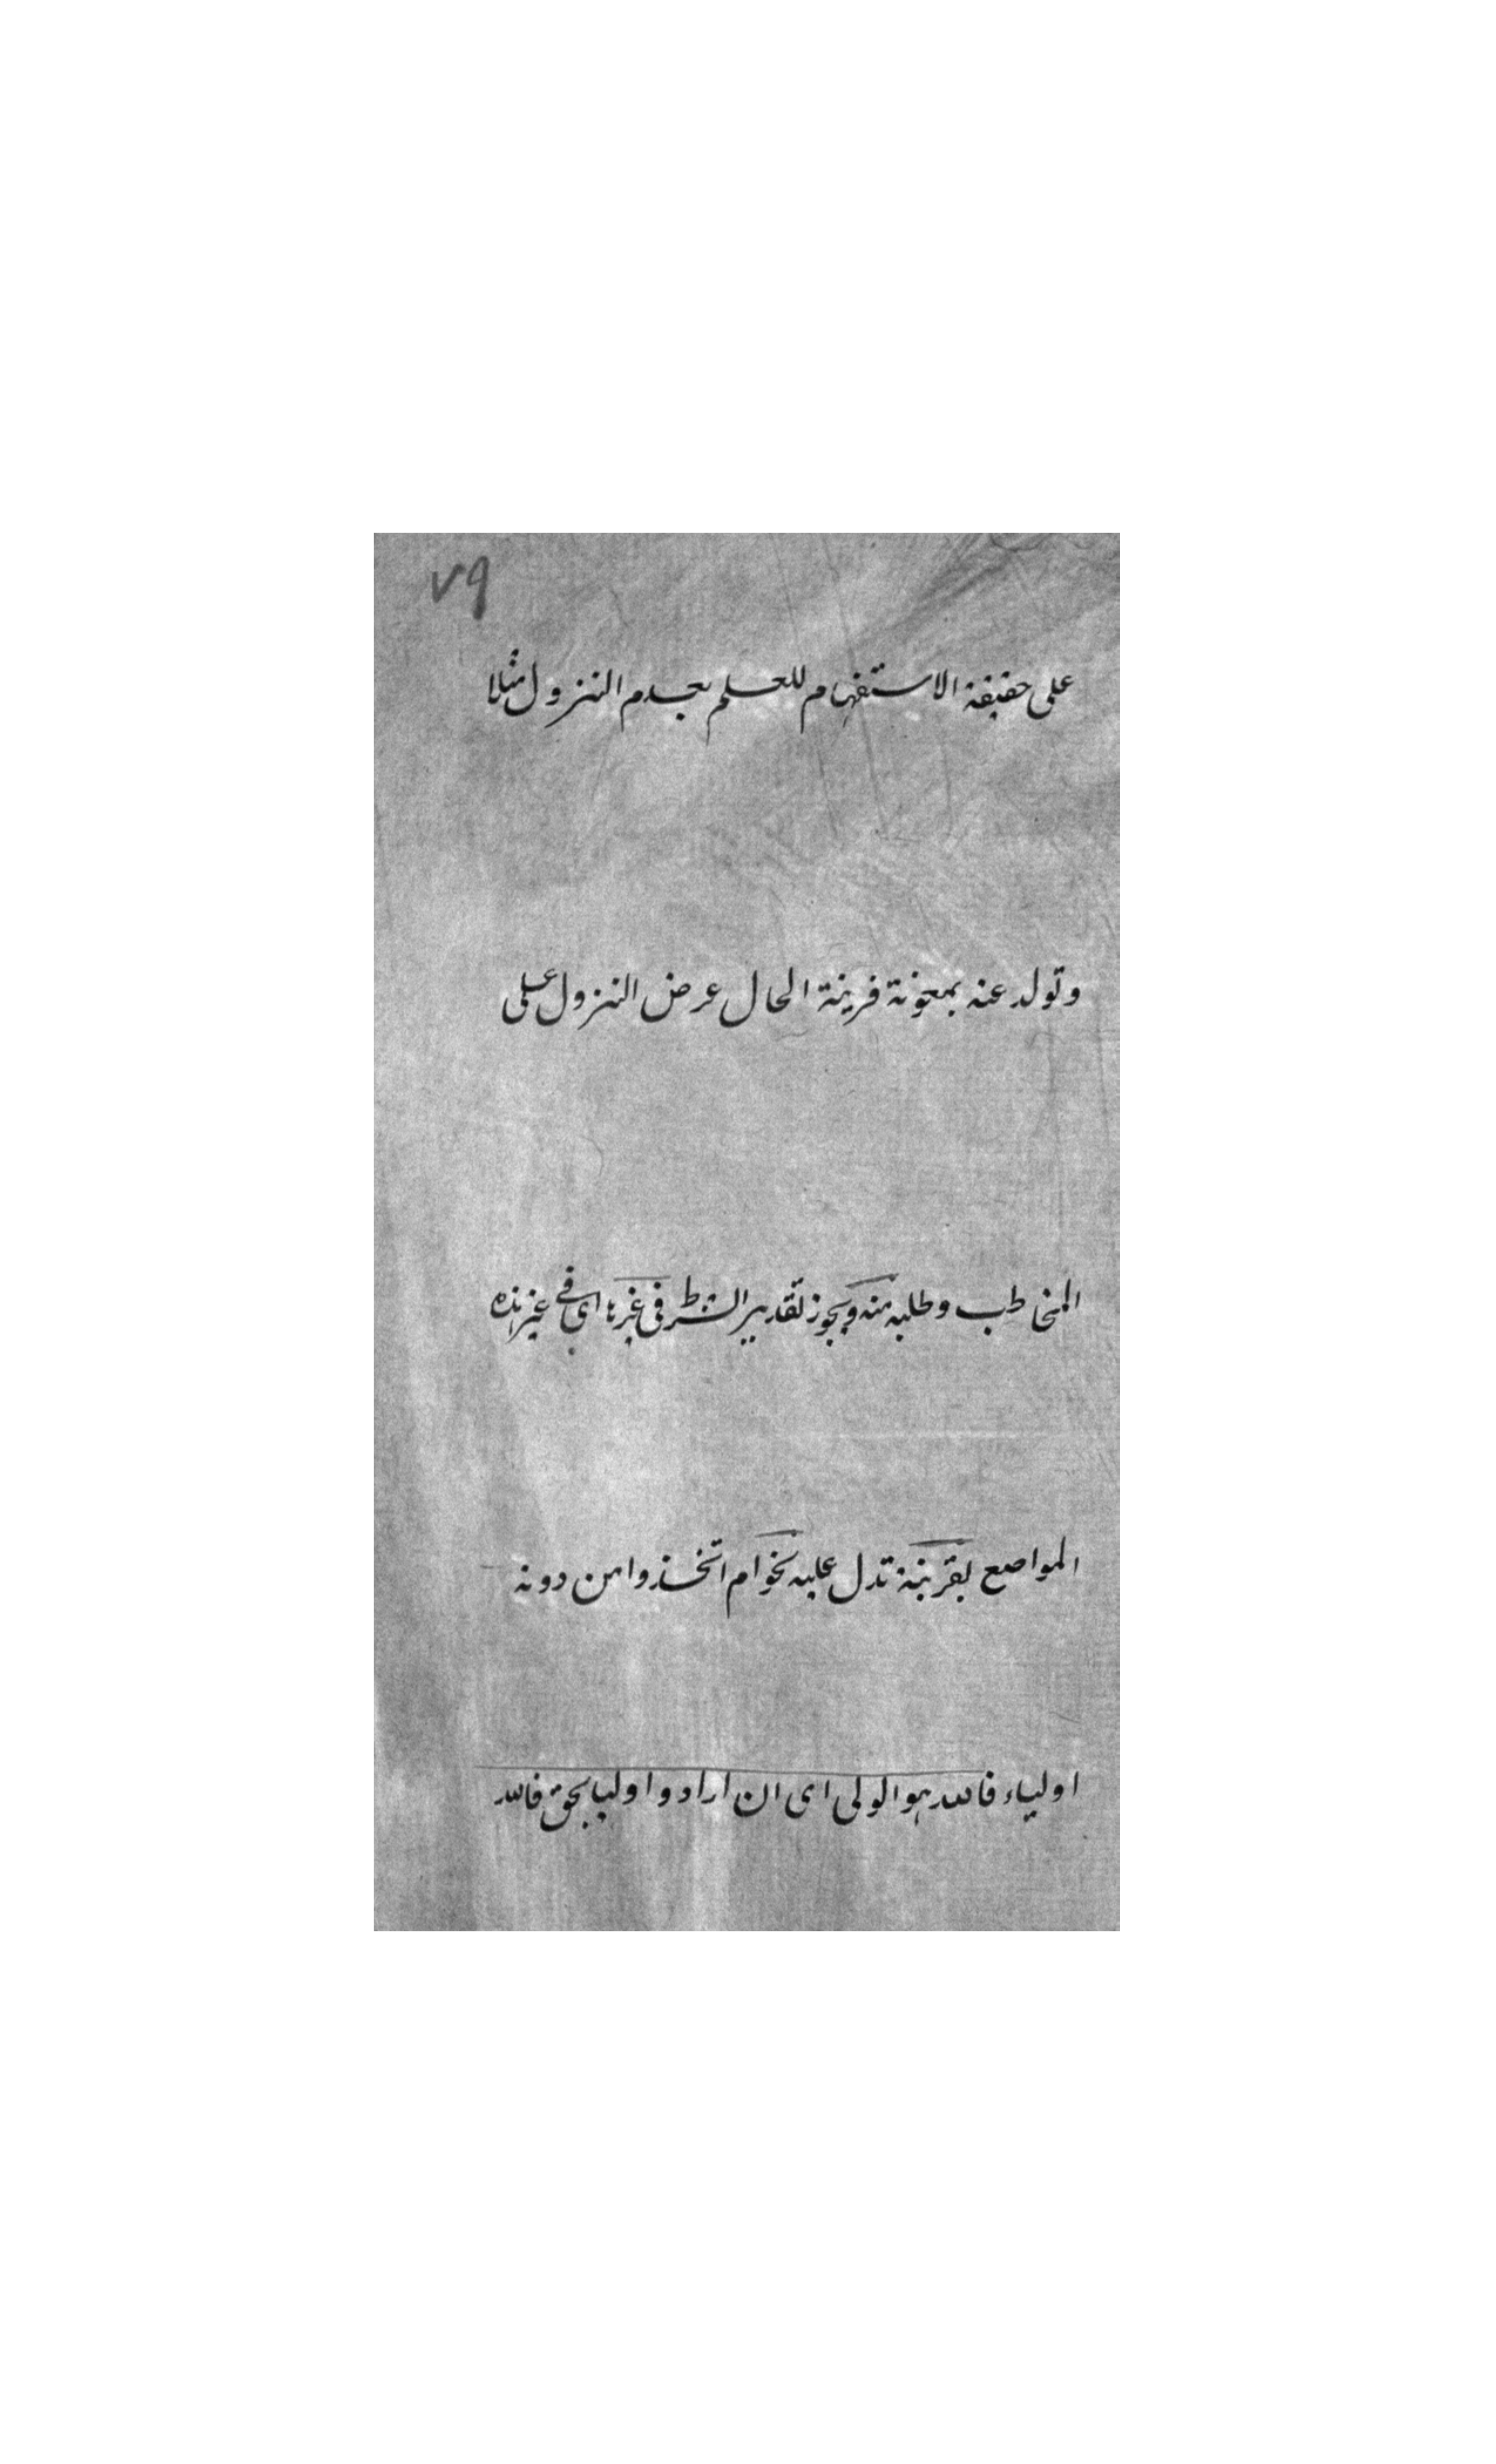 ٧٩
على حقيقة الاستفهام للعلم بعدم النزول مثلا
وتولد عنه بمعونة قرينة الحال عرض النزول على
المخاطب وطلبه منه ويجوز تقدير الشرط في غيرها اى في غير هذه
المواضع بقرينة تدل عليه نحو ام اتخذوا من دونه
اولياء فالله هو الولى اى ان ارادوا اوليا بحق فالله